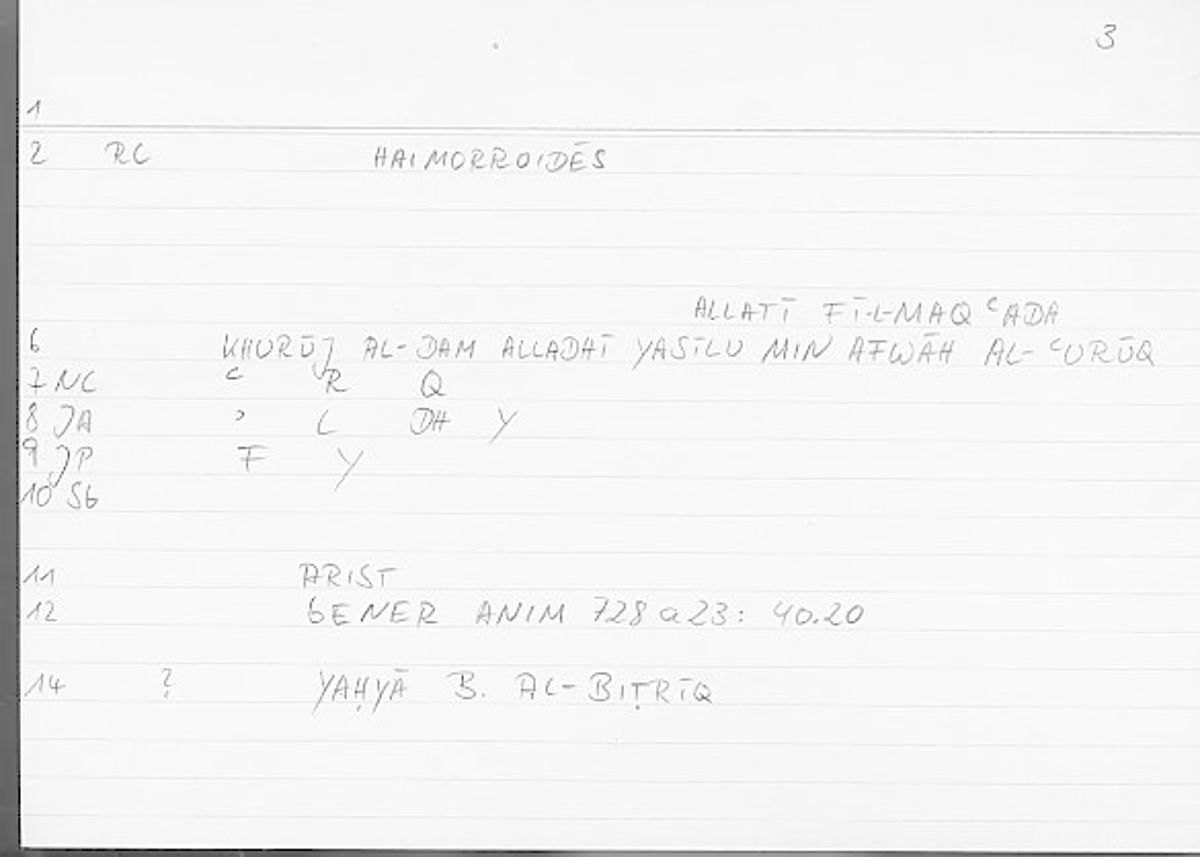 3
1
2 RC HAIMORROIDĒS
ALLATĪ FĪ-L-MAQ ʿADA
6 KHURŪJ AL-DAM ALLADHĪ YASĪLU MIN AFWĀH AL-ʿURŪQ
7 NC ʿ R Q
8 JA ʾ L DH Y
9 JP F Y
10 SG
11 ARIST
12 GENER ANIM 728a23: 40.20
14 ? YAḤYĀ B. AL-BIṬRĪQ